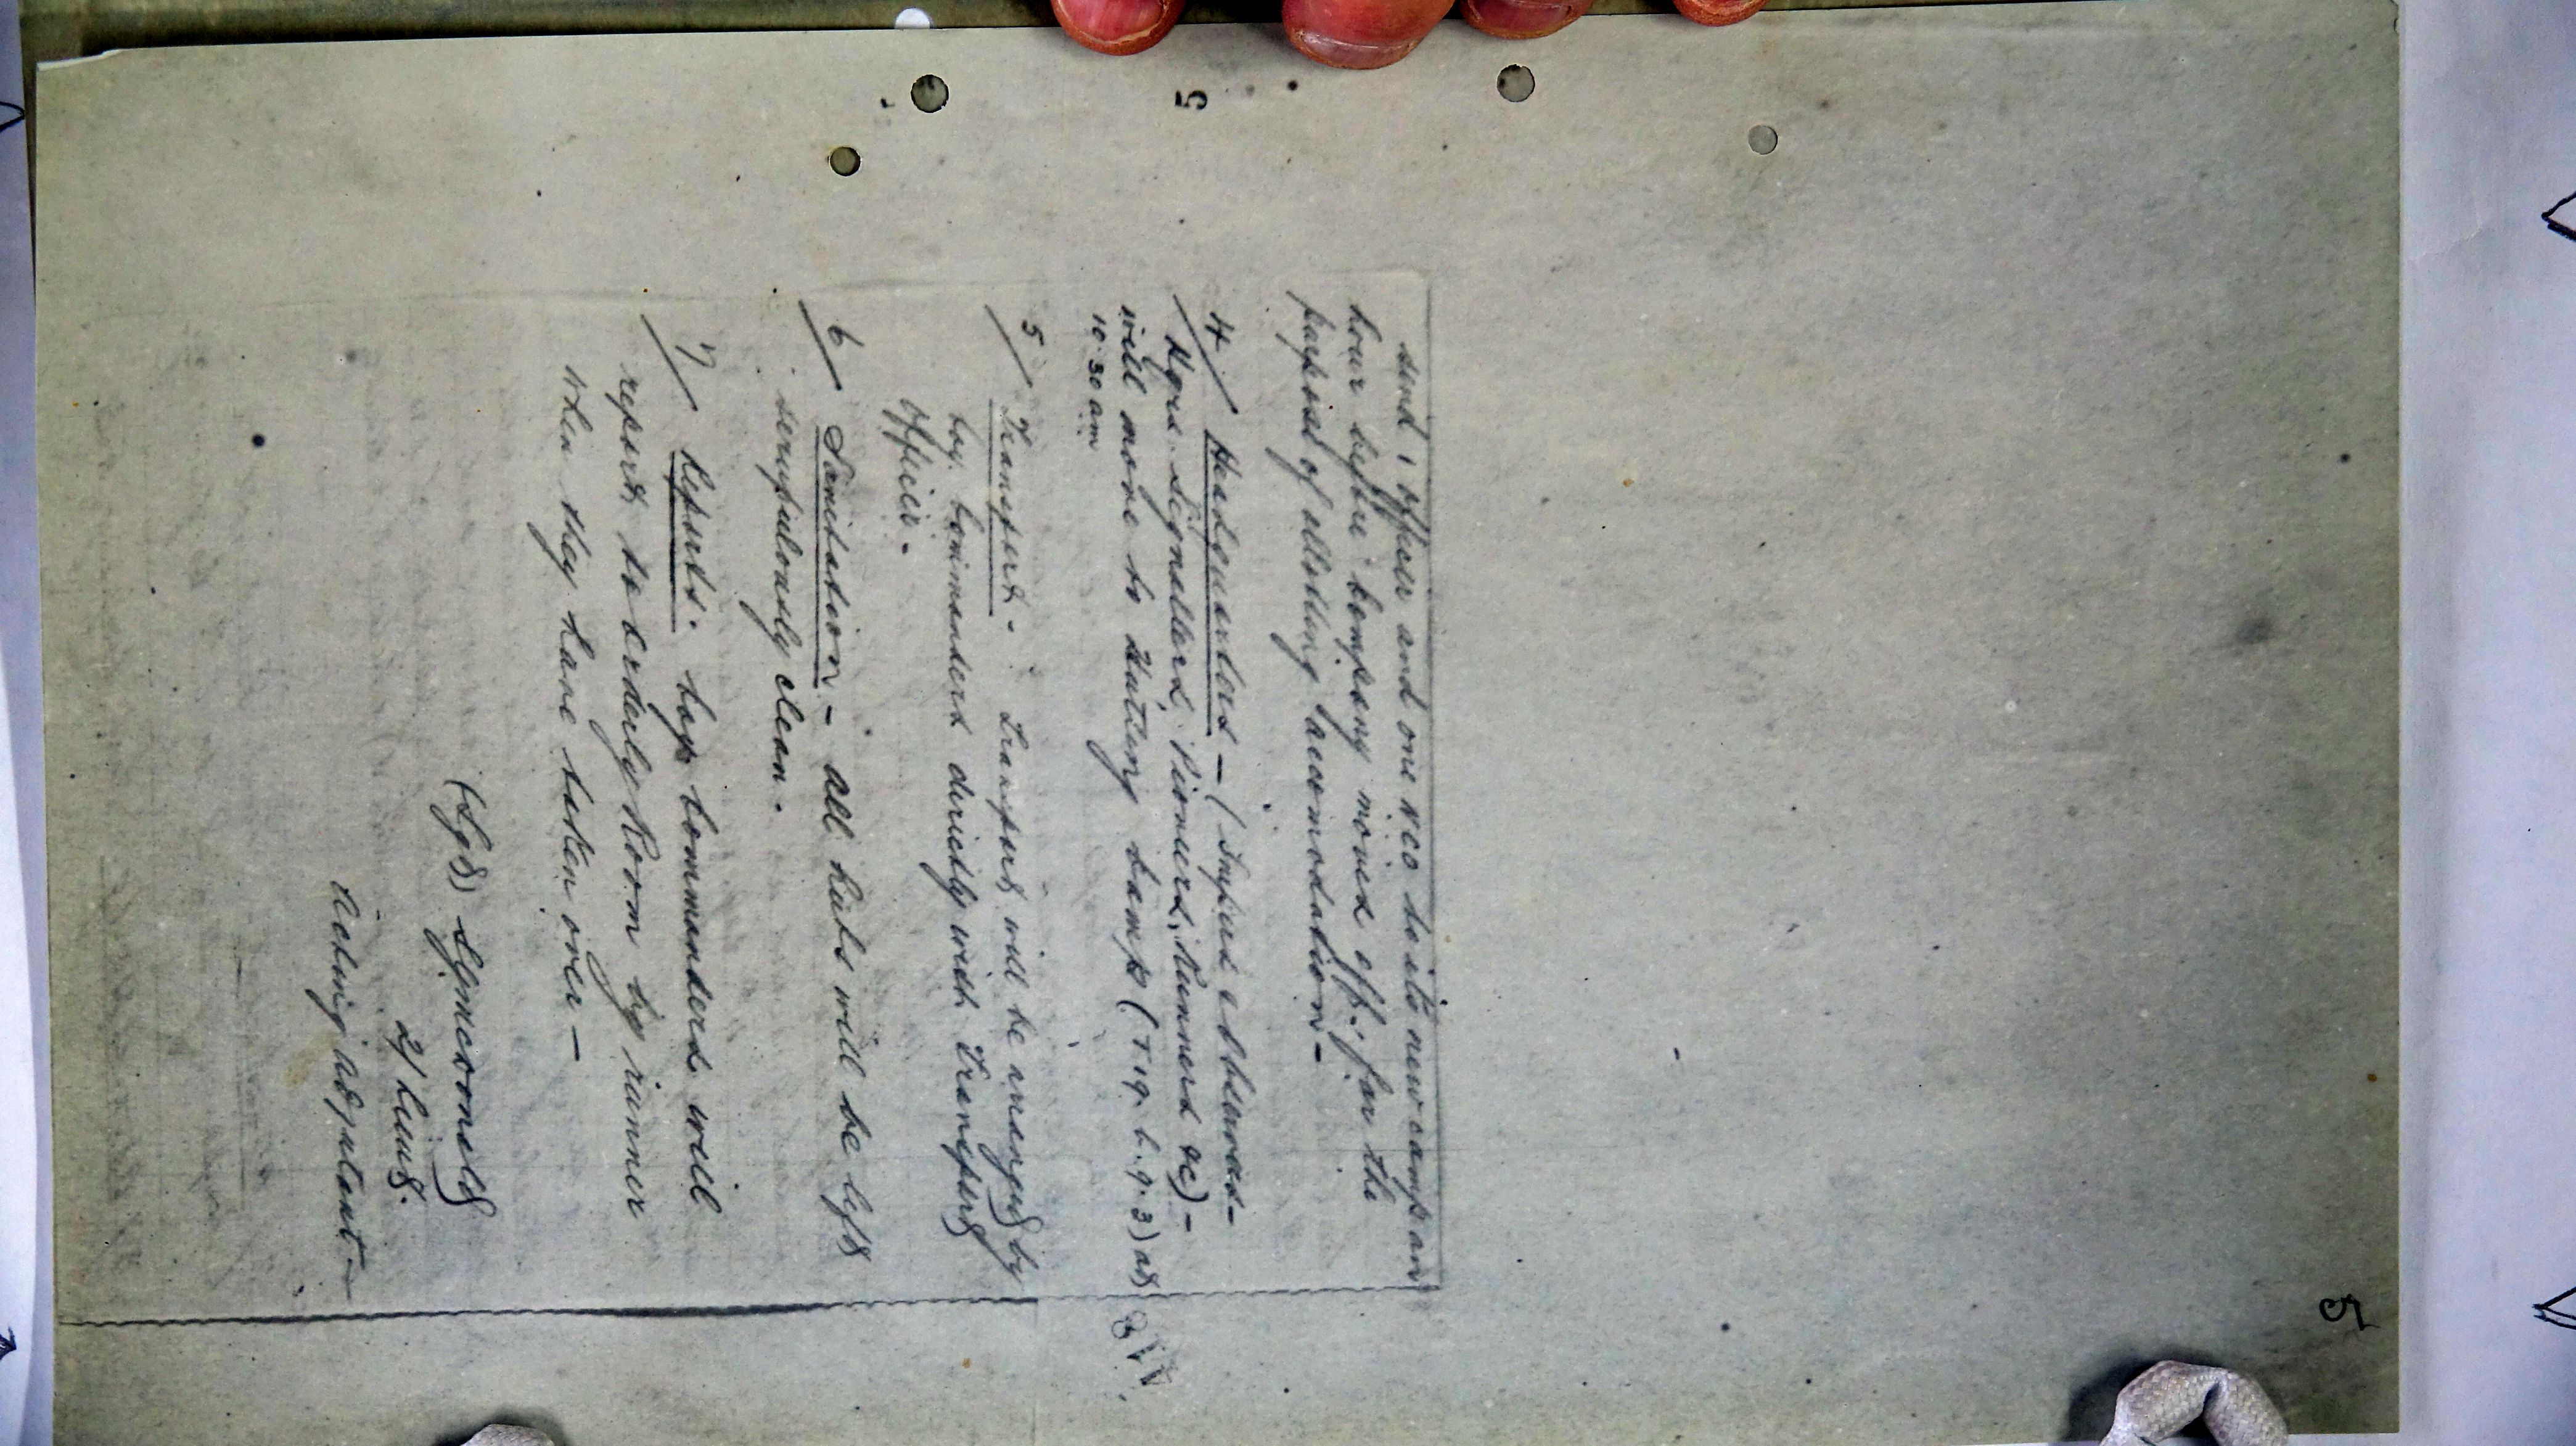 5
5
send 1 officer and one NCO to its new camp an
hour before Company moves off. for the
purpose of allotting accomodation -
4/ Headquarters - (Snipers & Observers -
Hqrs Signallers, Pioneers, Runners &c) -
will move to Hutting Camp (T 19. b. 9. 3) at
10.30 am
5/ Transport - Transport will be arranged by
Coy. Commanders directly with Transport
Officer -
6/ Sanitation - All huts will be left
scrupulously clean -
7/ Reports. Coy Commanders will
report to Orderly Room by runner
when they have taken over -
(Sgd)
2/Lieut.
Acting Adjutant -